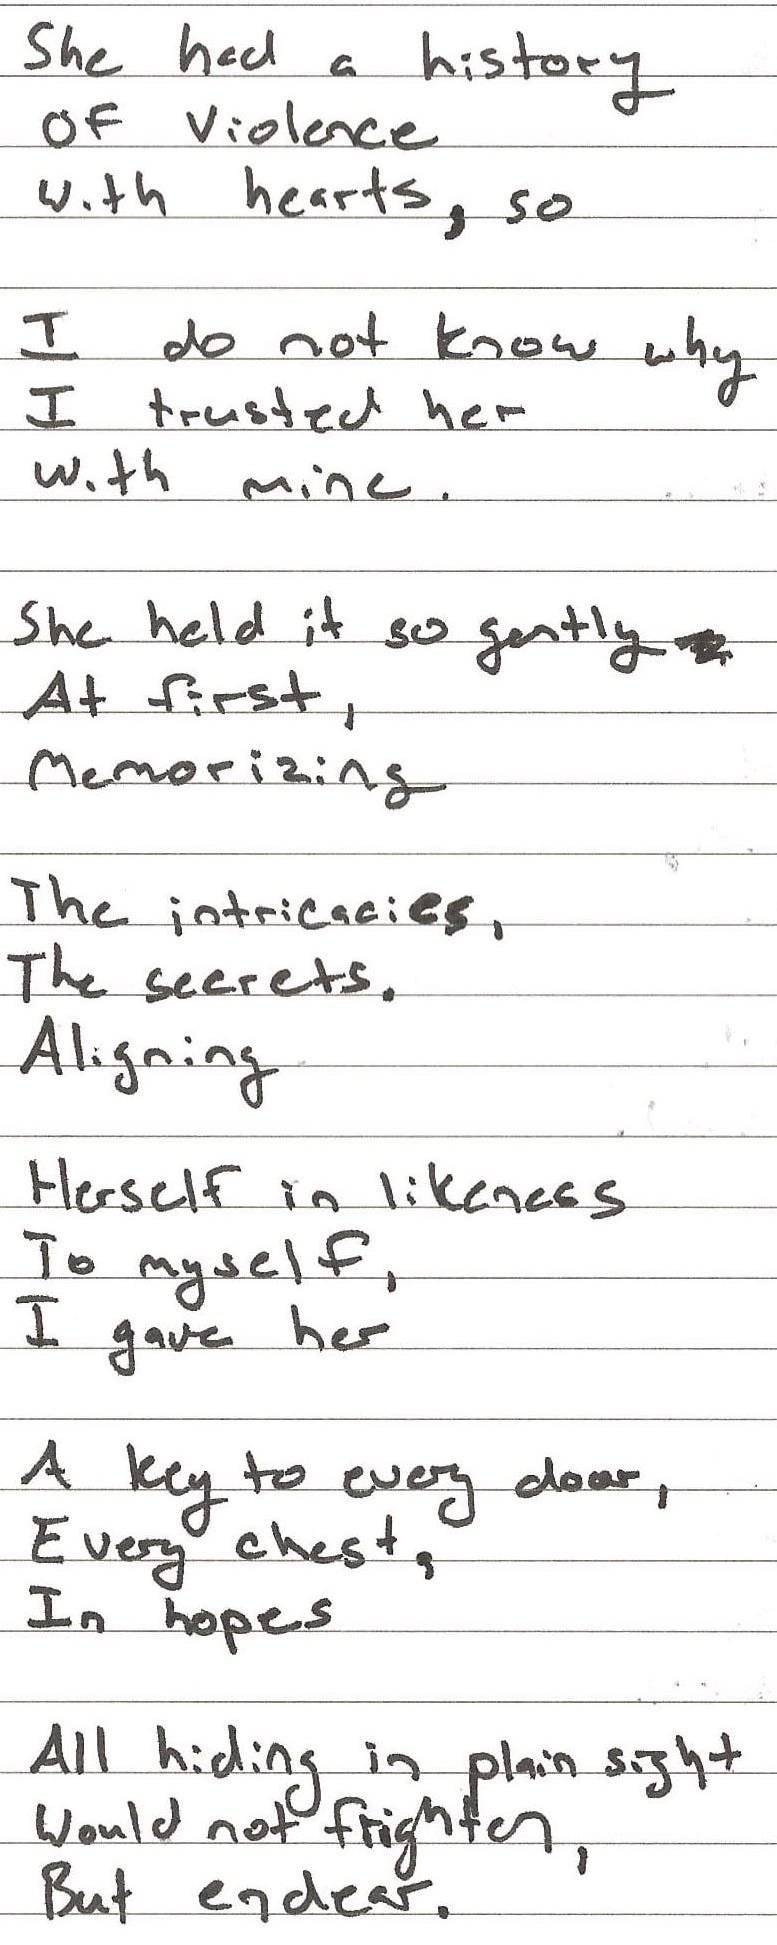 She had a history
OF Violence
with hearts, so
I do not know why
I trusted her
with mine.
She held it so gently
At first,
Memorizing
The intricacies,
The secrets.
Aligning
Herself in likeness
To myself,
I gave her
A key to every door,
Every chest,
In hopes
All hiding in plain sight
Would not frighten,
But endear.